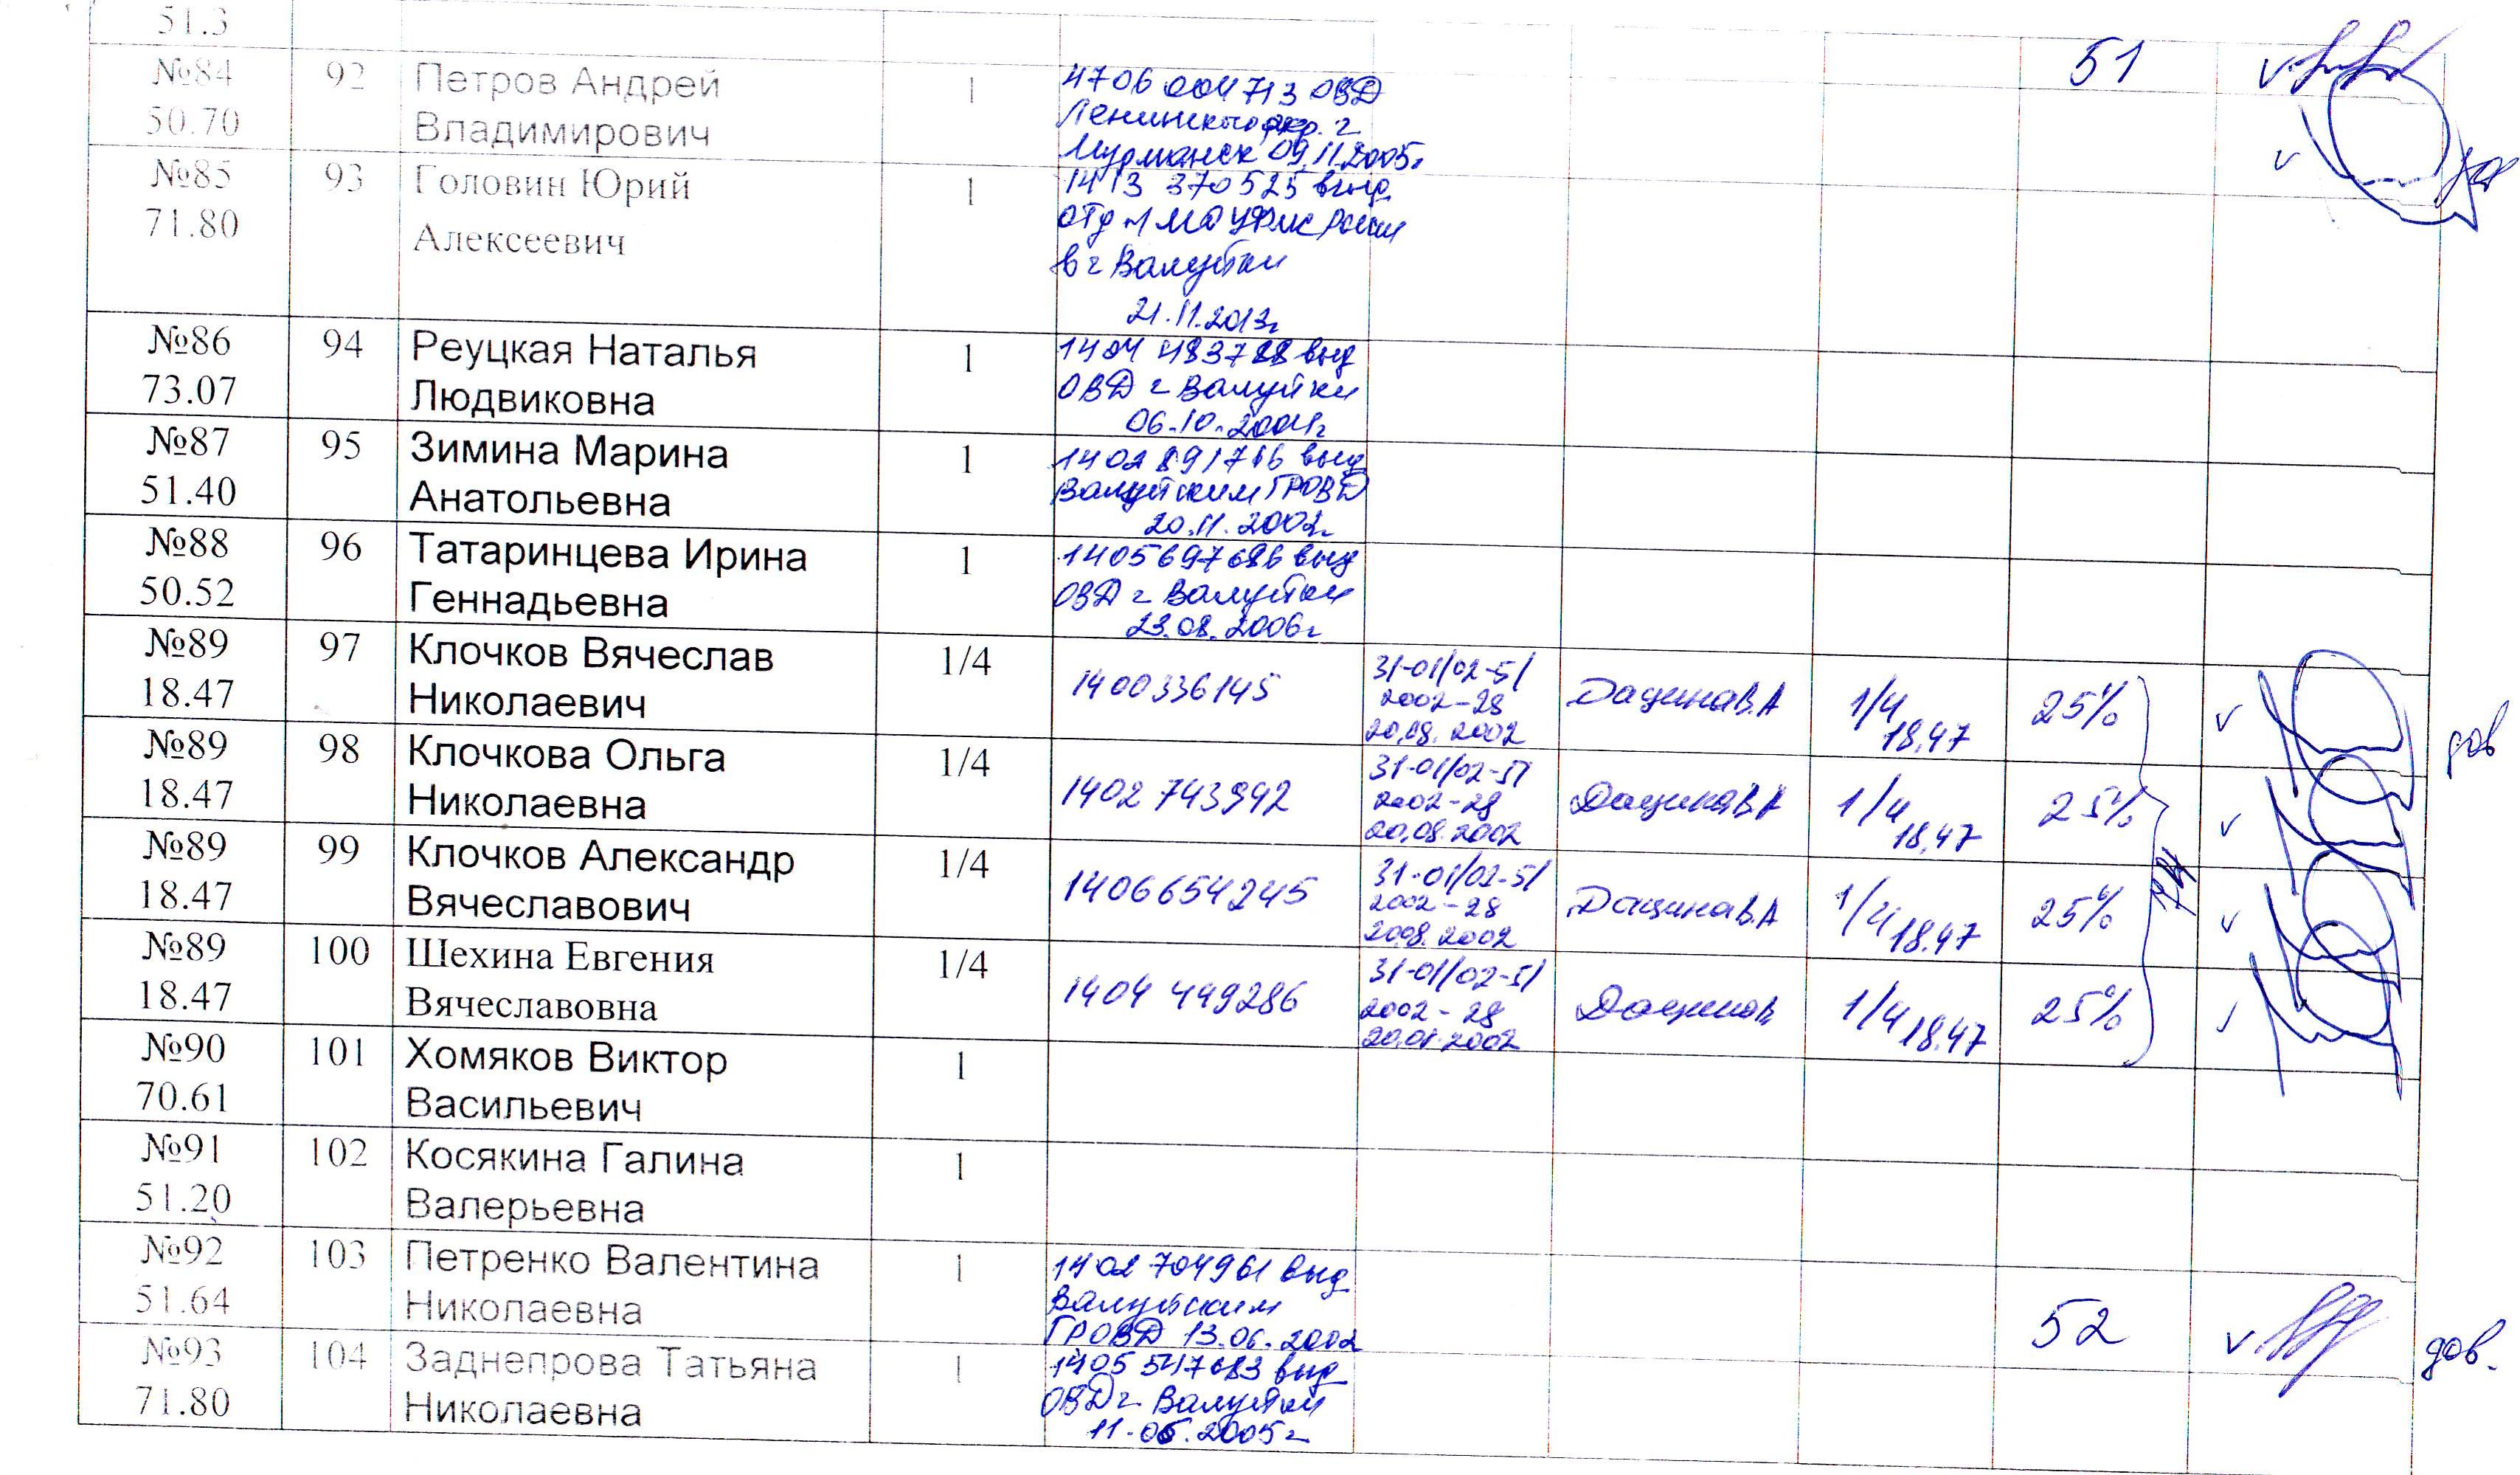 51.3
№84 92 Петров Андрей 1 4706 004713 ОВД 51
50.70 Владимирович Ленинского окр. г
Мурманск 09.11.2005г
№85 93 Головин Юрий 1 1413 370525 выд
71.80 Алексеевич отд МО УФМС России
в г Валуйки
21.11.2013г
№86 94 Реуцкая Наталья 1 1404 483788 выд
73.07 Людвиковна ОВД г Валуйки
06.10.2004г
№87 95 Зимина Марина 1 1402 891716 выд
51.40 Анатольевна Валуйским ГРОВД
20.11.2002г
№88 96 Татаринцева Ирина 1 1405697686 выд
50.52 Геннадьевна ОВД г Валуйки
23.08.2006г
№89 97 Клочков Вячеслав 1/4 1400336145 31-01/02-5/ 1/4 25%
18.47 Николаевич 2002-28 18.47 дов
20.08.2002
№89 98 Клочкова Ольга 1/4 1402 743992 31-01/02-5/ 1/4 25%
18.47 Николаевна 2002-28 18.47
20.08.2002
№89 99 Клочков Александр 1/4 1406654245 31-01/02-5/ 1/4 25%
18.47 Вячеславович 2002-28 18.47
20.08.2002
№89 100 Шехина Евгения 1/4 1404 449286 31-01/02-5/ 1/4 25%
18.47 Вячеславовна 2002-28 18.47
2002
№90 101 Хомяков Виктор 1
70.61 Васильевич
№91 102 Косякина Галина 1
51.20 Валерьевна
№92 103 Петренко Валентина 1 1402 704961 выд 52
51.64 Николаевна Валуйским дов.
ГРОВД 13.06.2002
№93 104 Заднепрова Татьяна 1 1405 547683 выд
71.80 Николаевна ОВД г. Валуйки
11.05.2005г